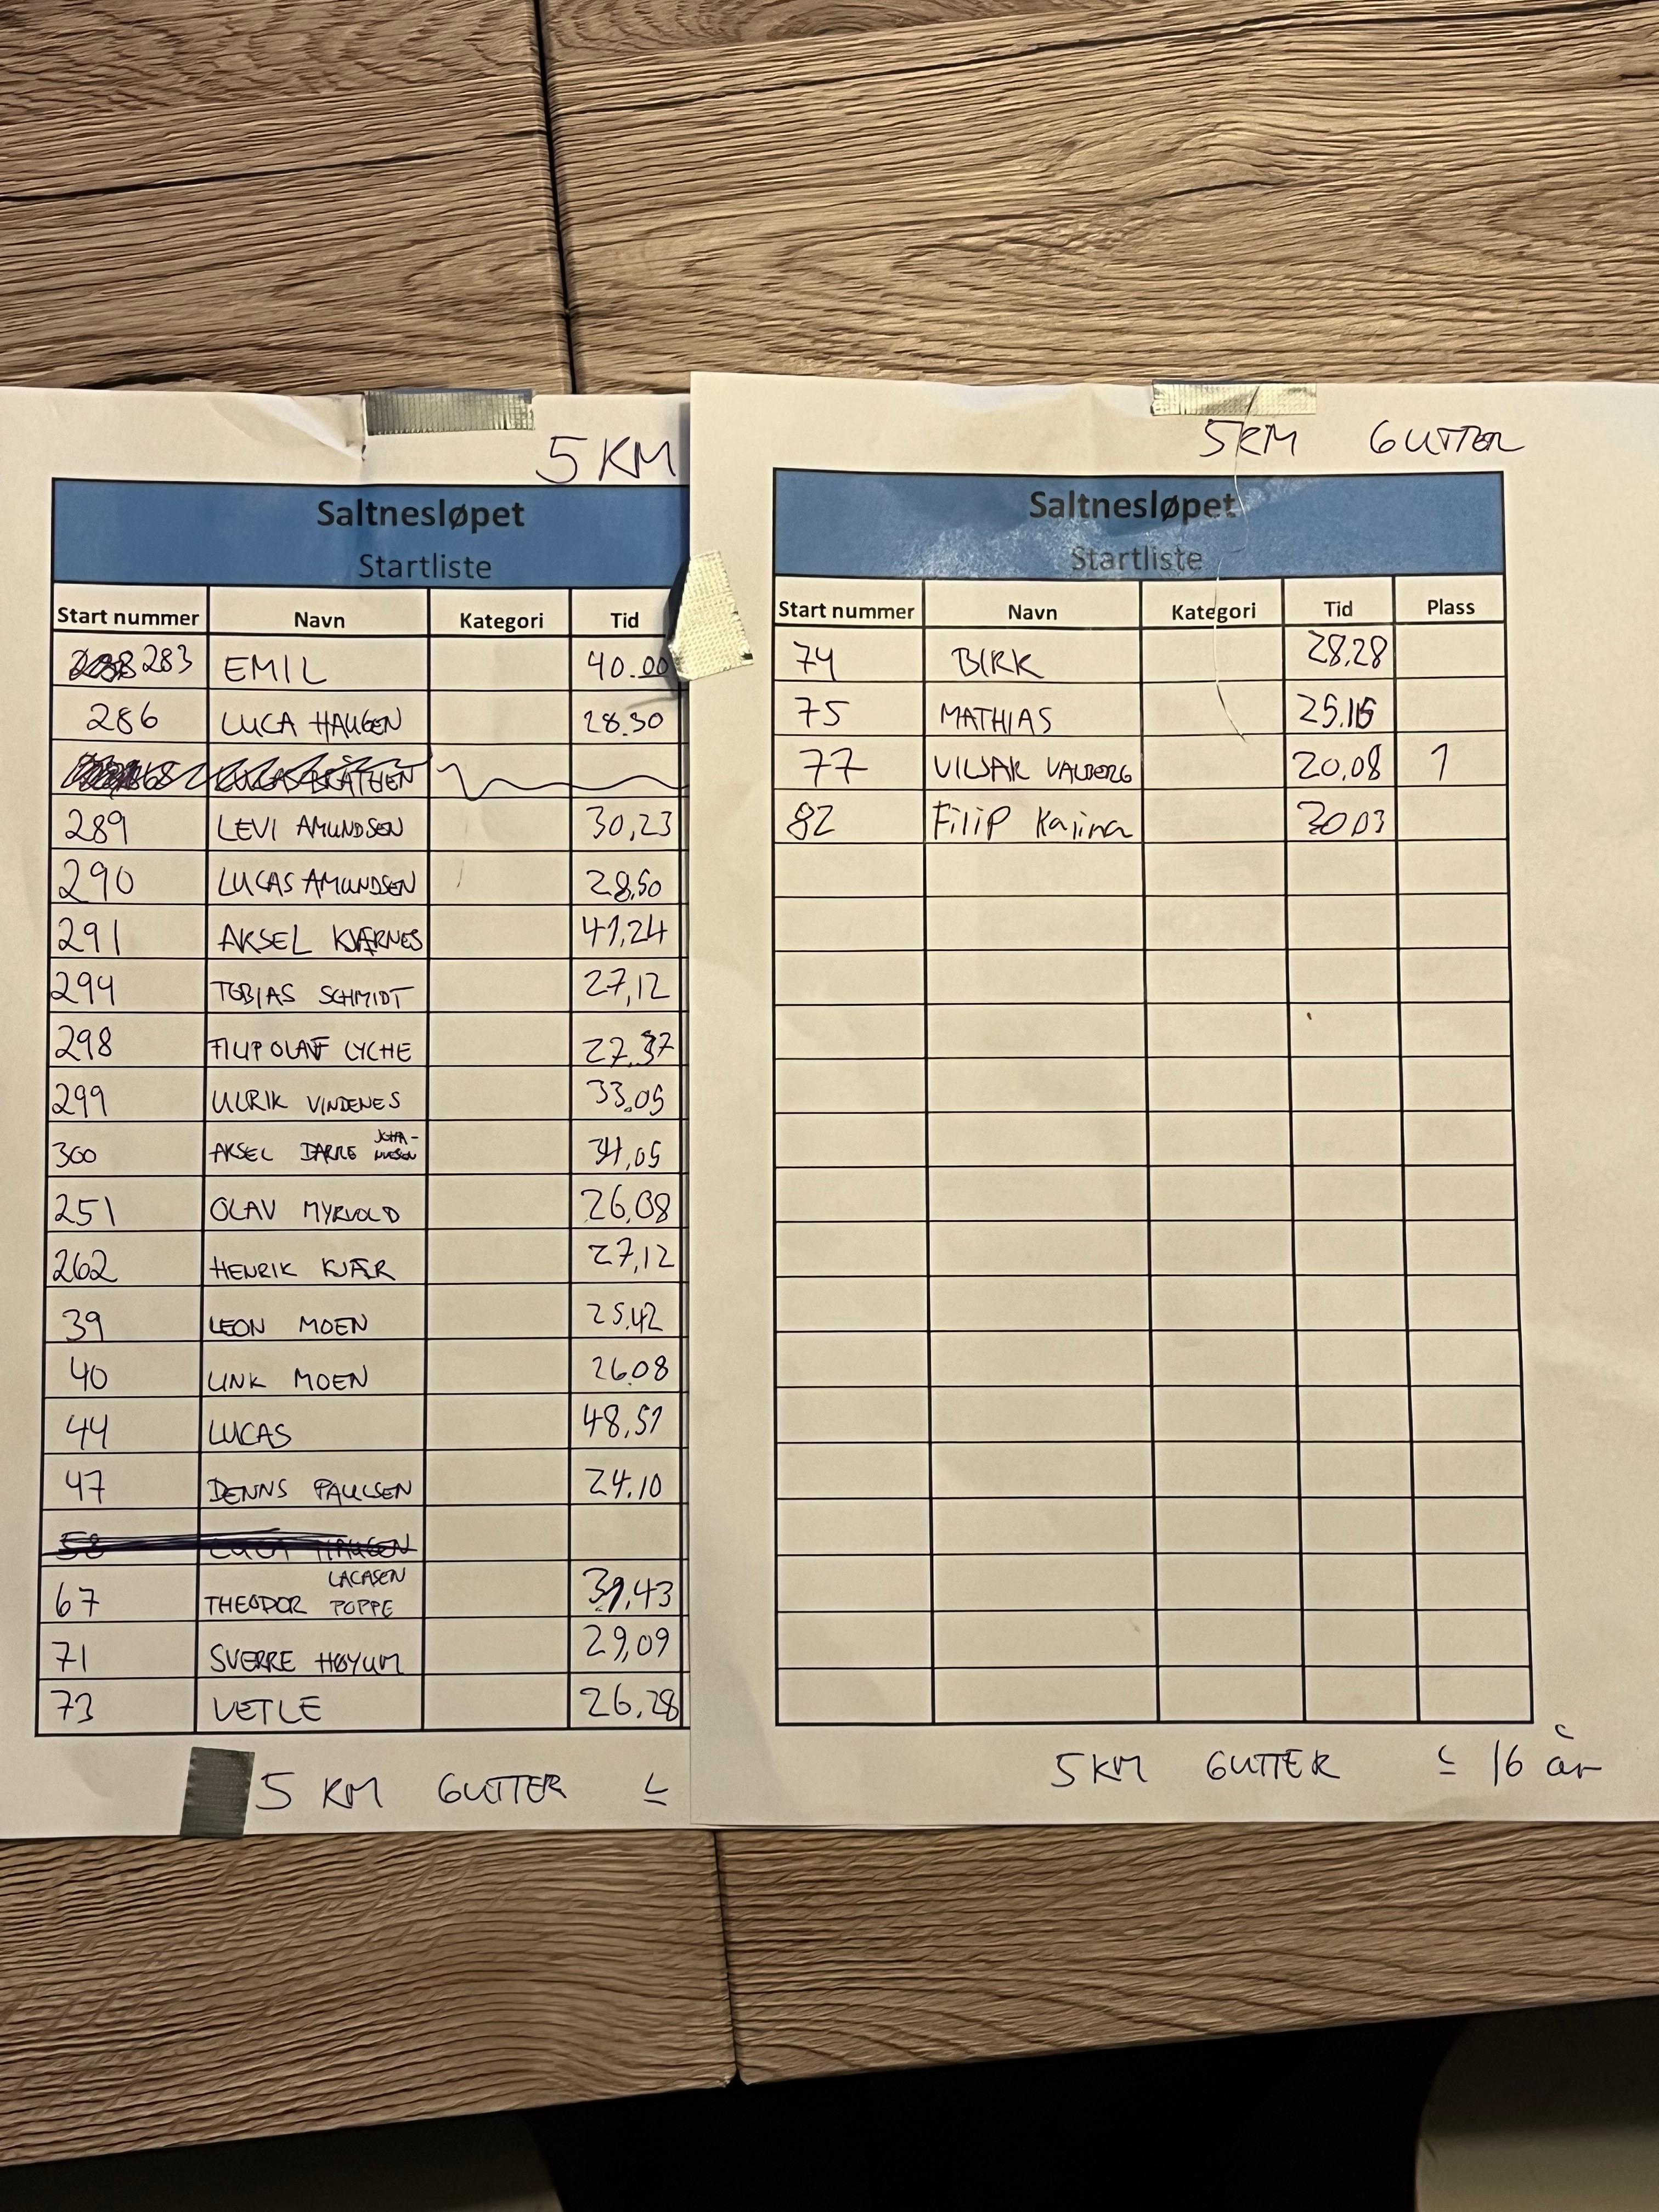 5 KM
Saltnesløpet
Startliste
Start nummer Navn Kategori Tid
283 EMIL 40.00
286 LUCA HAUGEN 28.30
289 LEVI AMUNDSEN 30,23
290 LUCAS AMUNDSEN 28,50
291 AKSEL KJÆRNES 41,24
294 TOBIAS SCHMIDT 27,12
298 FILIP OLAF LYCHE 27.37
299 ULRIK VINDENES 33,05
300 AKSEL DARRE 34,05
251 OLAV MYRVOLD 26,08
262 HENRIK KJÆR 27,12
39 LEON MOEN 25,42
40 LINK MOEN 26.08
44 LUCAS 48,51
47 DENNS PAULSEN 24.10
LUCA HAUGEN
67 THEODOR POPPE 39,43
71 SVERRE HØYUM 29,09
73 VETLE 26,28
5 KM GUTTER ≤
5KM GUTTER
Saltnesløpet
Startliste
Start nummer Navn Kategori Tid Plass
74 BIRK 28,28
75 MATHIAS
77 VILJAR VALBERG 20,08 1
82 FiliP Kajina
5KM GUTTER ≤ 16 år